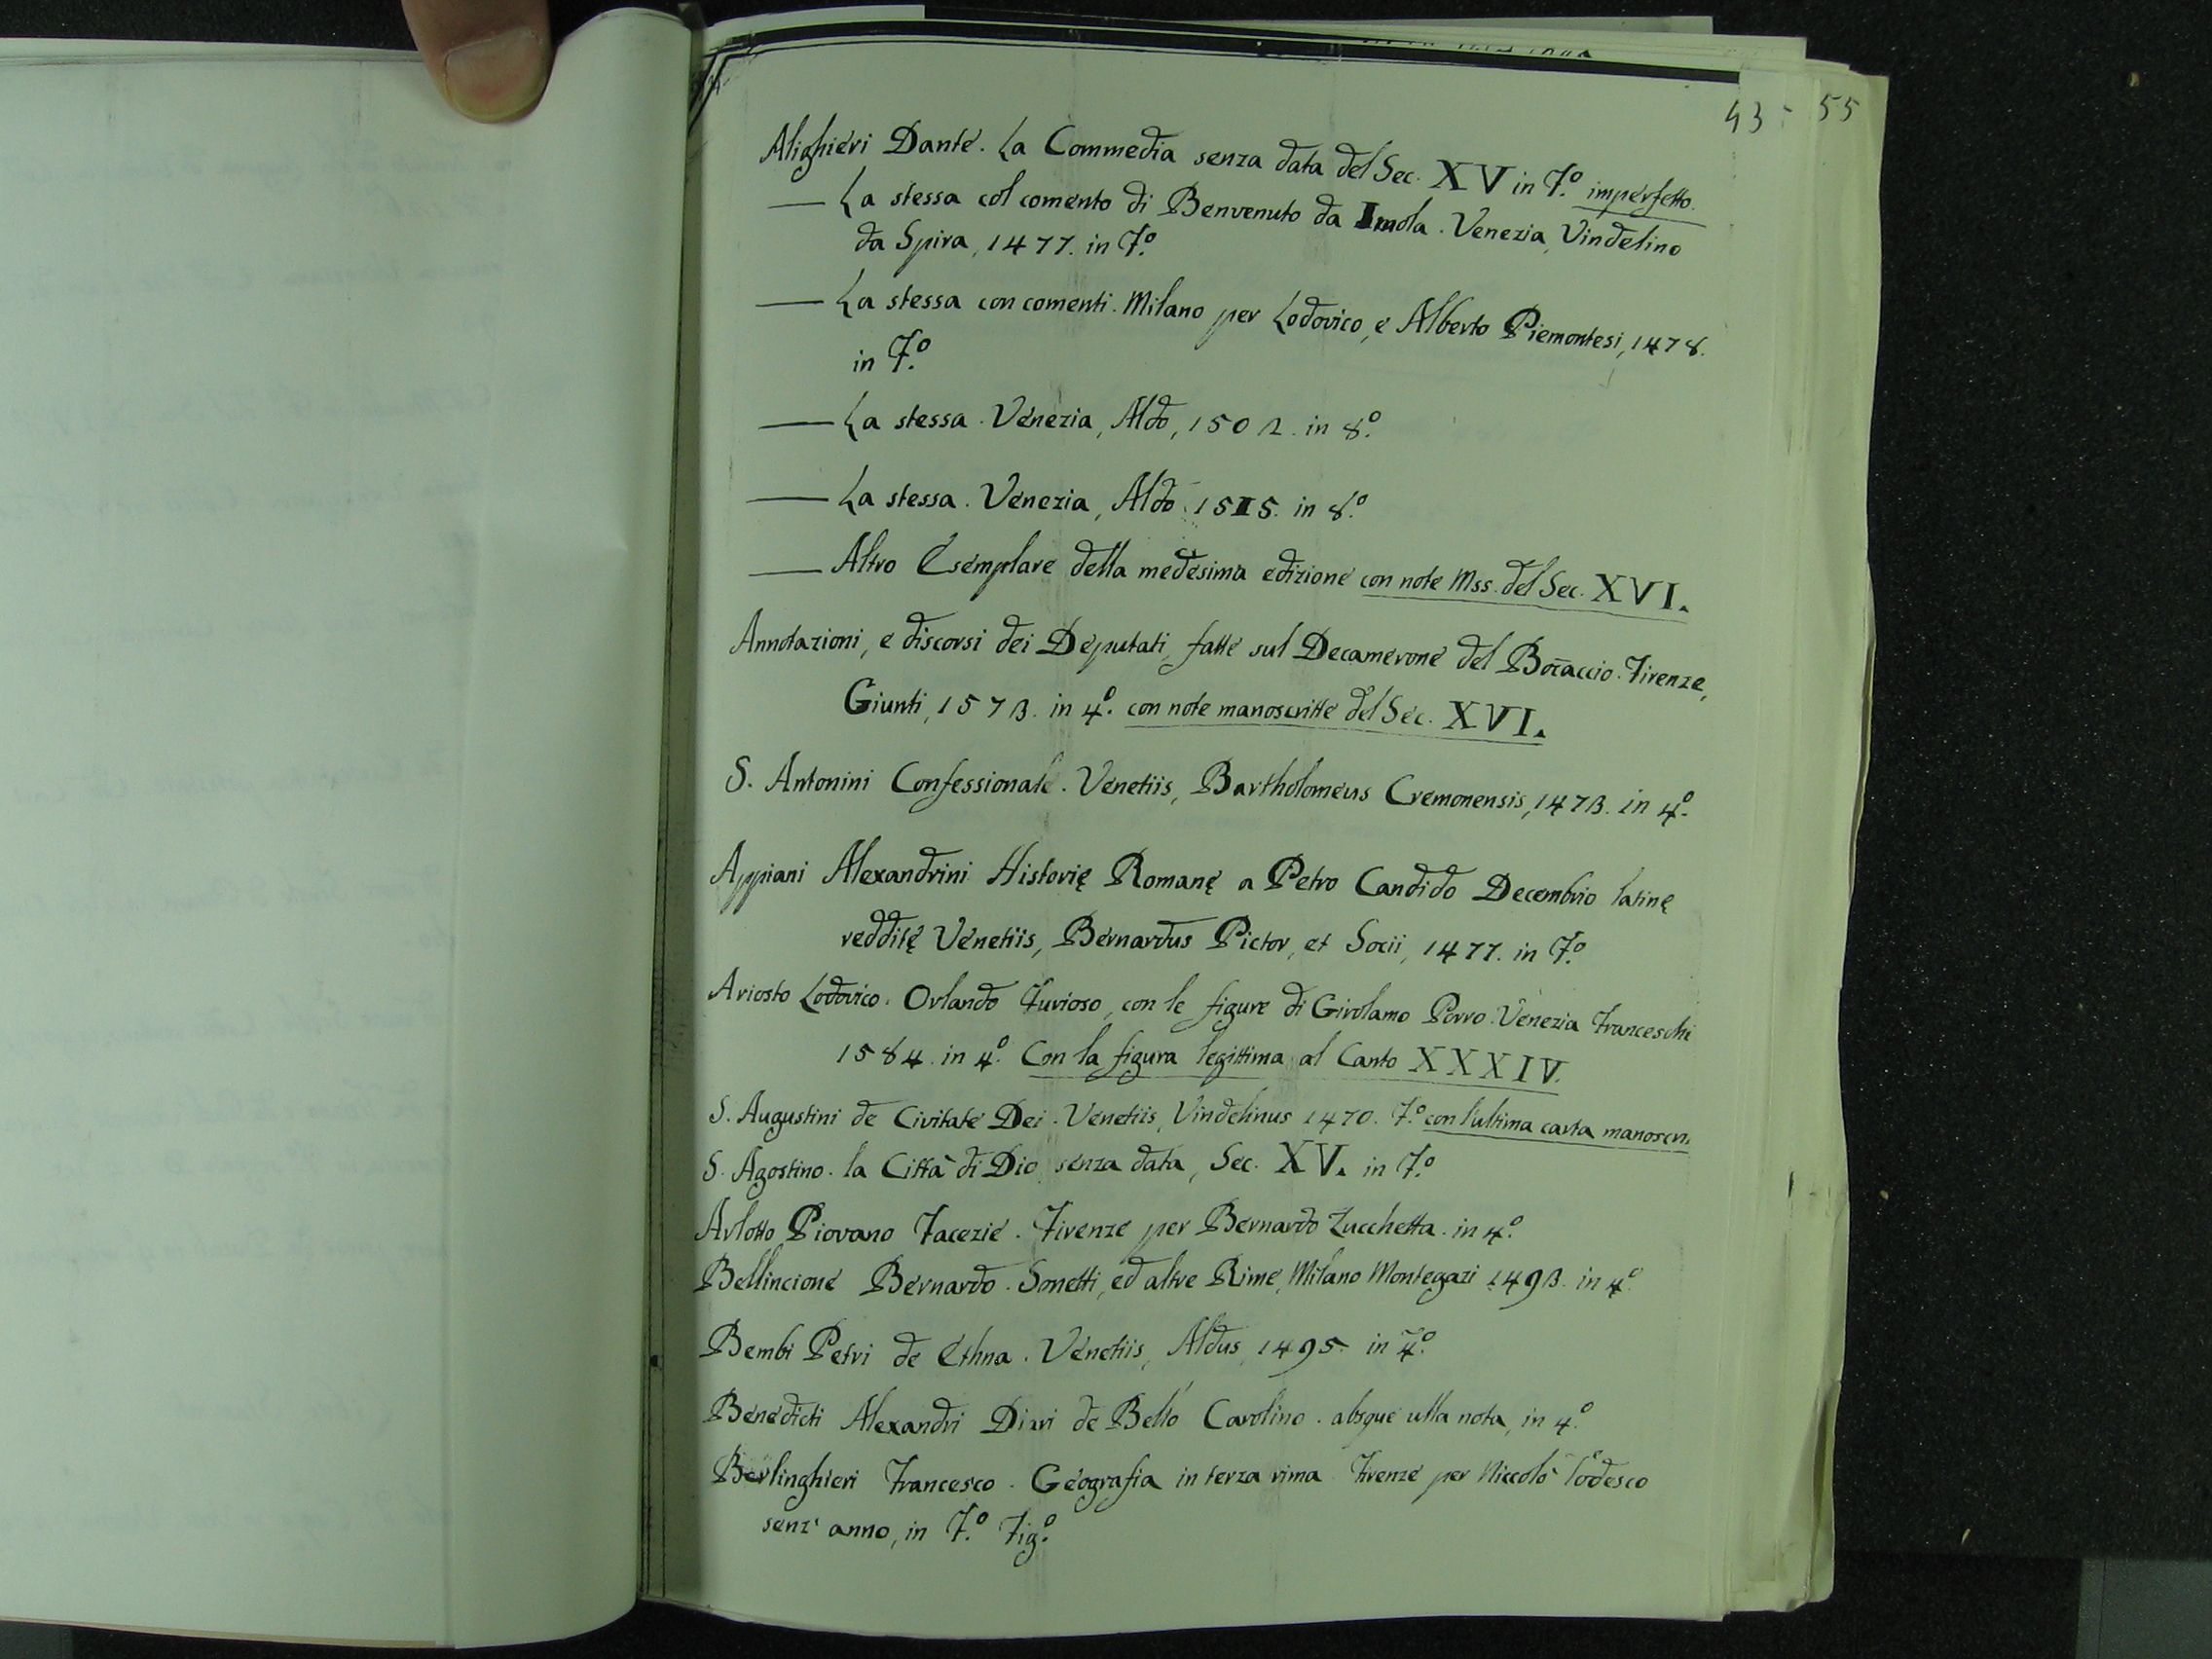 43 - 55
Alighieri Dante. La Commedia senza data del Sec. XV in F.º imperfetto.
— La stessa col comento di Benvenuto da Imola. Venezia, Vindelino
da Spira, 1477. in F.º
— La stessa con comenti. Milano per Lodovico, e Alberto Piemontesi, 1478.
in F.º
— La stessa. Venezia, Aldo, 1502. in 8.º
— La stessa. Venezia, Aldo. 1515. in 8.º
— Altro Esemplare della medesima edizione con note Mss. del Sec. XVI.
Annotazioni, e discorsi dei Deputati, fatte sul Decamerone del Bocaccio. Firenze,
Giunti, 1573. in 4.º con note manoscritte del Sec. XVI.
S. Antonini Confessionale. Venetiis, Bartholomeus Cremonensis, 1473. in 4.º
Appiani Alexandrini Historię Romanę a Petro Candido Decembrio latinę
redditę Venetiis, Bernardus Pictor, et Socii, 1477. in F.º
Ariosto Lodovico. Orlando Furioso, con le figure di Girolamo Porro. Venezia Franceschi
1584. in 4.º Con la figura legittima al Canto XXXIV.
S. Augustini de Civitate Dei. Venetiis, Vindelinus 1470. F.º con l'ultima carta manoscri.
S. Agostino. la Città di Dio senza data, Sec. XV. in F.º
Arlotto Piovano Facezie. Firenze per Bernardo Zucchetta. in 4.º
Bellincione Bernardo. Sonetti, ed altre Rime, Milano Montegazi 1493. in 4.º
Bembi Petri de Ethna. Venetiis, Aldus, 1495. in 4.º
Benedicti Alexandri Diari de Bello Carolino. absque ulla nota, in 4.º
Berlinghieri Francesco. Geografia in terza rima Firenze per Niccolò Todesco
senz' anno, in F.º Fig.º